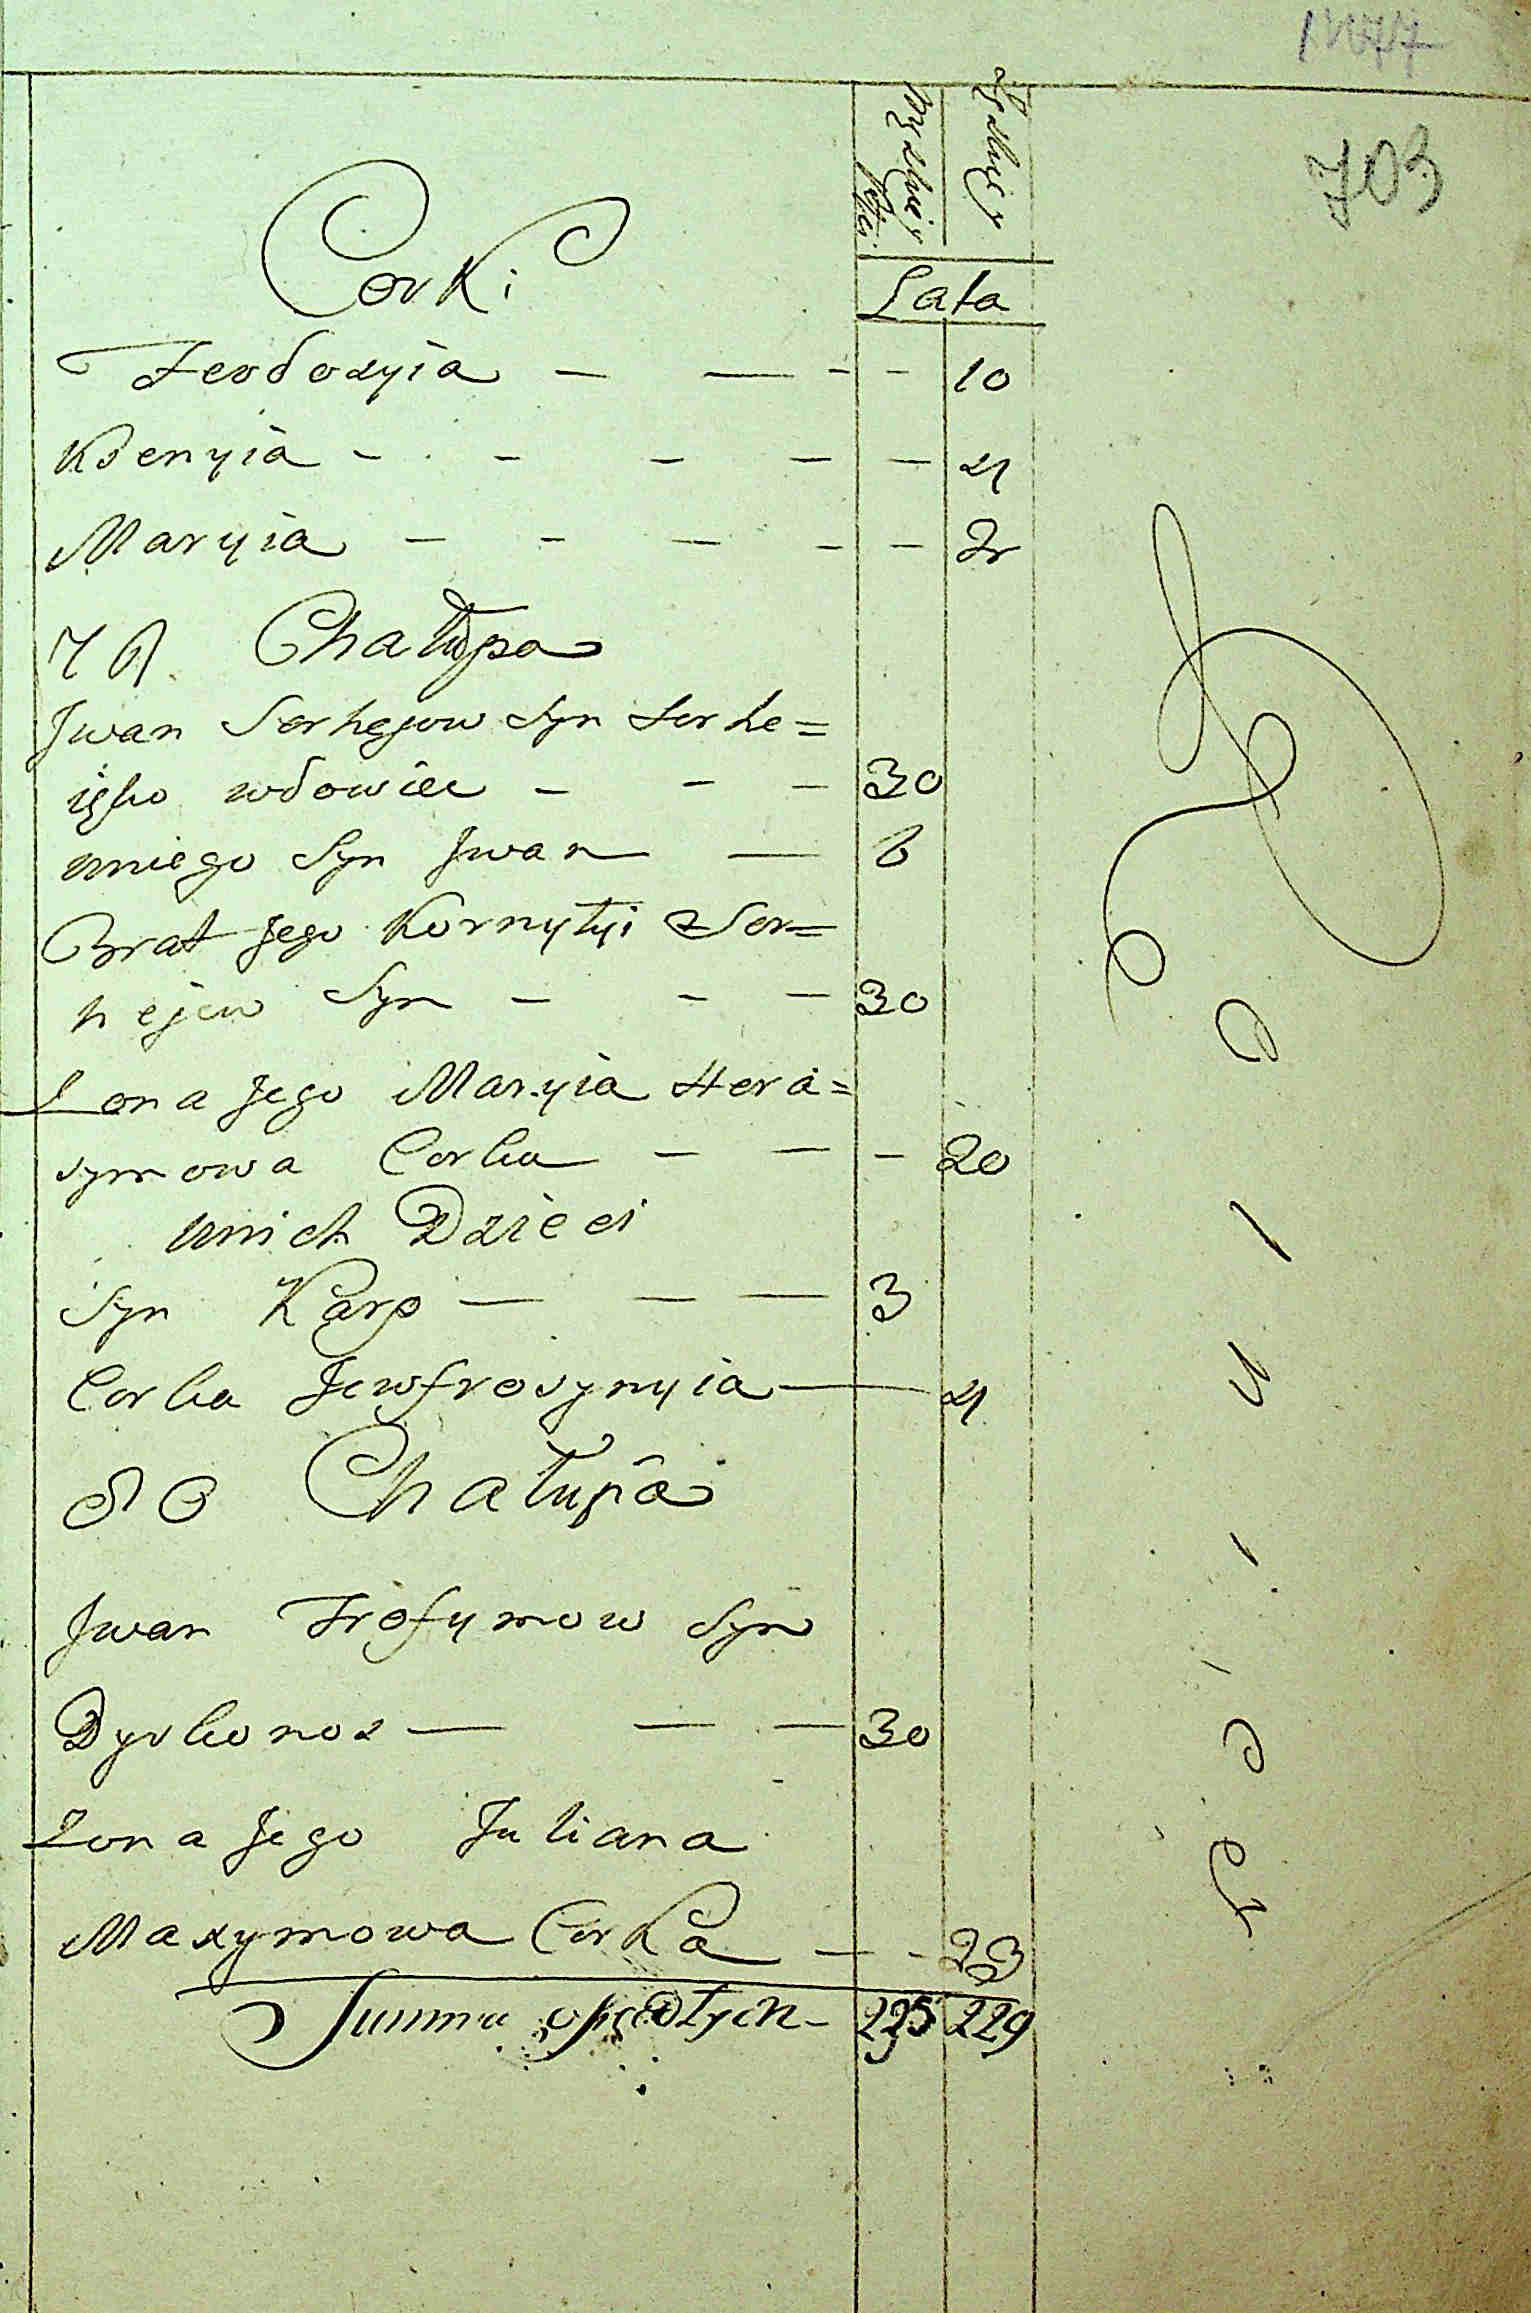 703
Męzkiey Płci
Lata
Corki
Feodozyia — — - - 10
Ksenyia - - - - - 4
Maryia - - - - - 2
79 Chałupa
Jwan Serhejow Syn Serhe=
ięko wdowiec - - - 30
uniego Syn Jwan — 6
Brat Jego Kornyłyi Ser=
hejow Syn - - - 30
Żona Jego Maryia Hera=
symowa Corka - - - 20
unich Dzieci
Syn Karp — — — 3
Corka Jewfrosynyia — 4
80 Chałupa
Jwan Trofymow Syn
Dyvkonos — — — 30
Żona Jego Juliana
Maxymowa Corka — - 23
Summa opisałych - 225 229